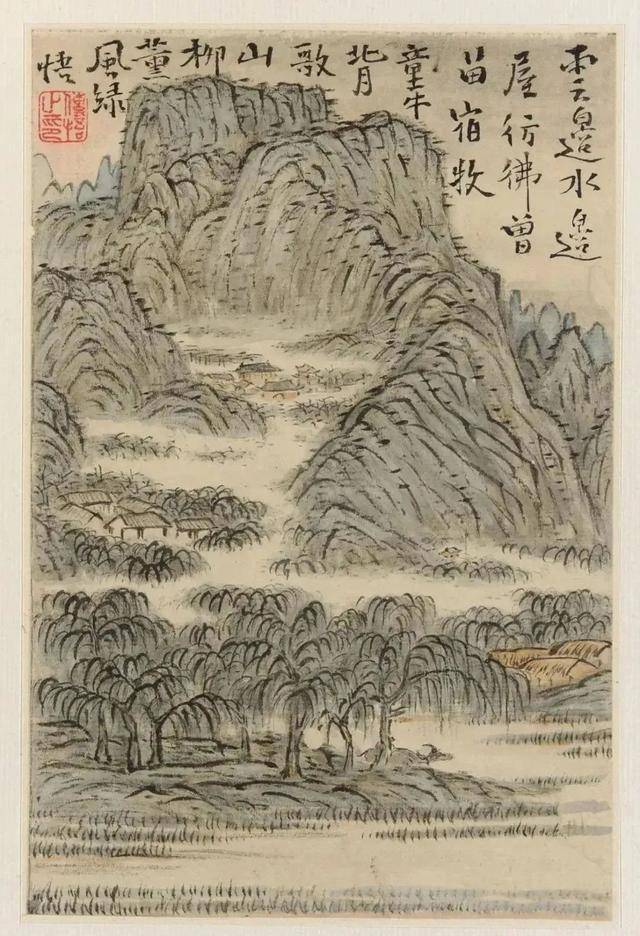 雲邊水邊
屋彷彿曾
留宿牧
童牛
背
歌
山
柳
薰
風綠
悟